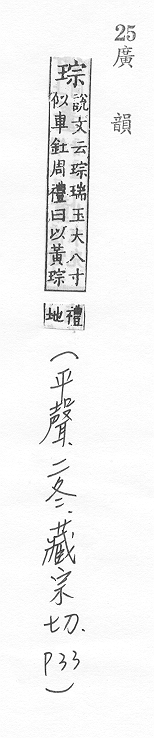 25廣韻
琮
說文云琮瑞玉大八寸
似車釭周禮曰以黃琮
禮
地
(平聲、二冬、藏宗切、P33)